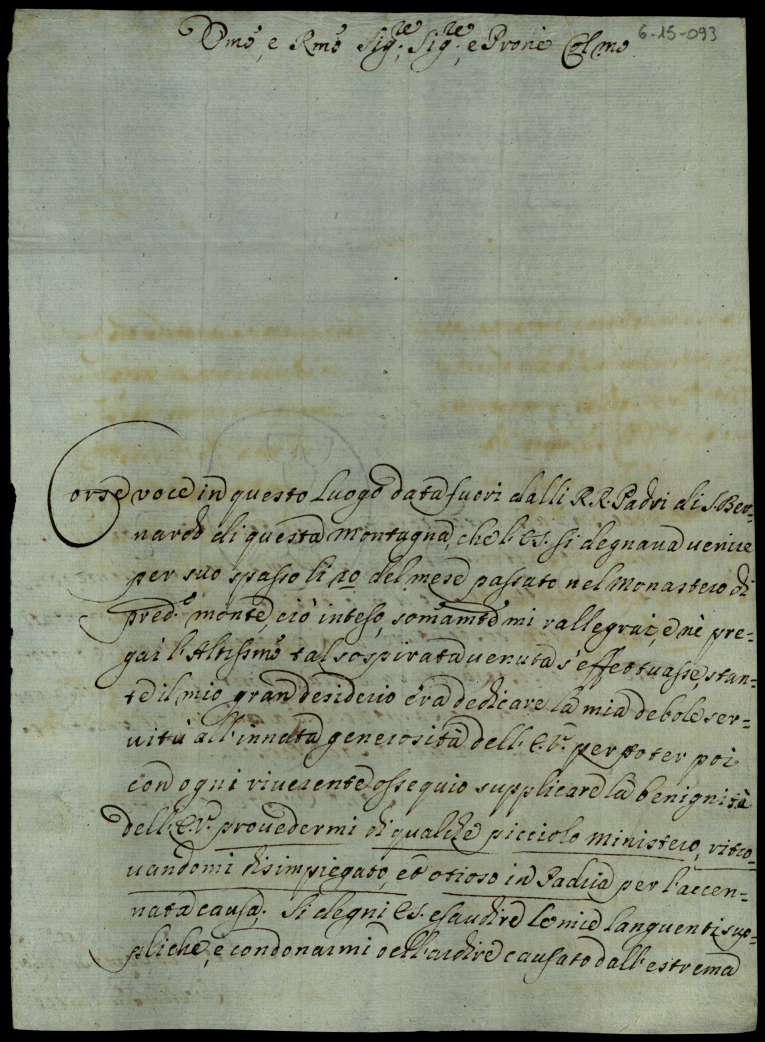 6-15-093
Emo, e Rmo Sig.re, Sig.re, e Prone Colmo
Corse voce in questo Luogo data fuori dalli R.R. Padri di S. Ber=
nardo di questa Montagna, che l'E.S. si degnava venire
per suo spasso li 20 del mese passato nel Monastero di
pred.o monte, ciò inteso, somamte mi rallegrai, e nè pre=
gai l'Altissmo tal sospirata venuta s'effettuasse, stan=
te il mio gran desiderio era dedicare la mia debole ser=
vitù all'innata generosità dell'E.V. per poter poi
con ogni riverente ossequio supplicare la benignità
dell'E.V. provedermi di qualche picciolo ministero, ritro=
vandomi disimpiegato, et otioso in Padua per l'accen=
nata causa. Si degni E.S. esaudire le mie languenti sup=
pliche, e condonarmi dell'ardire causato dall'estrema